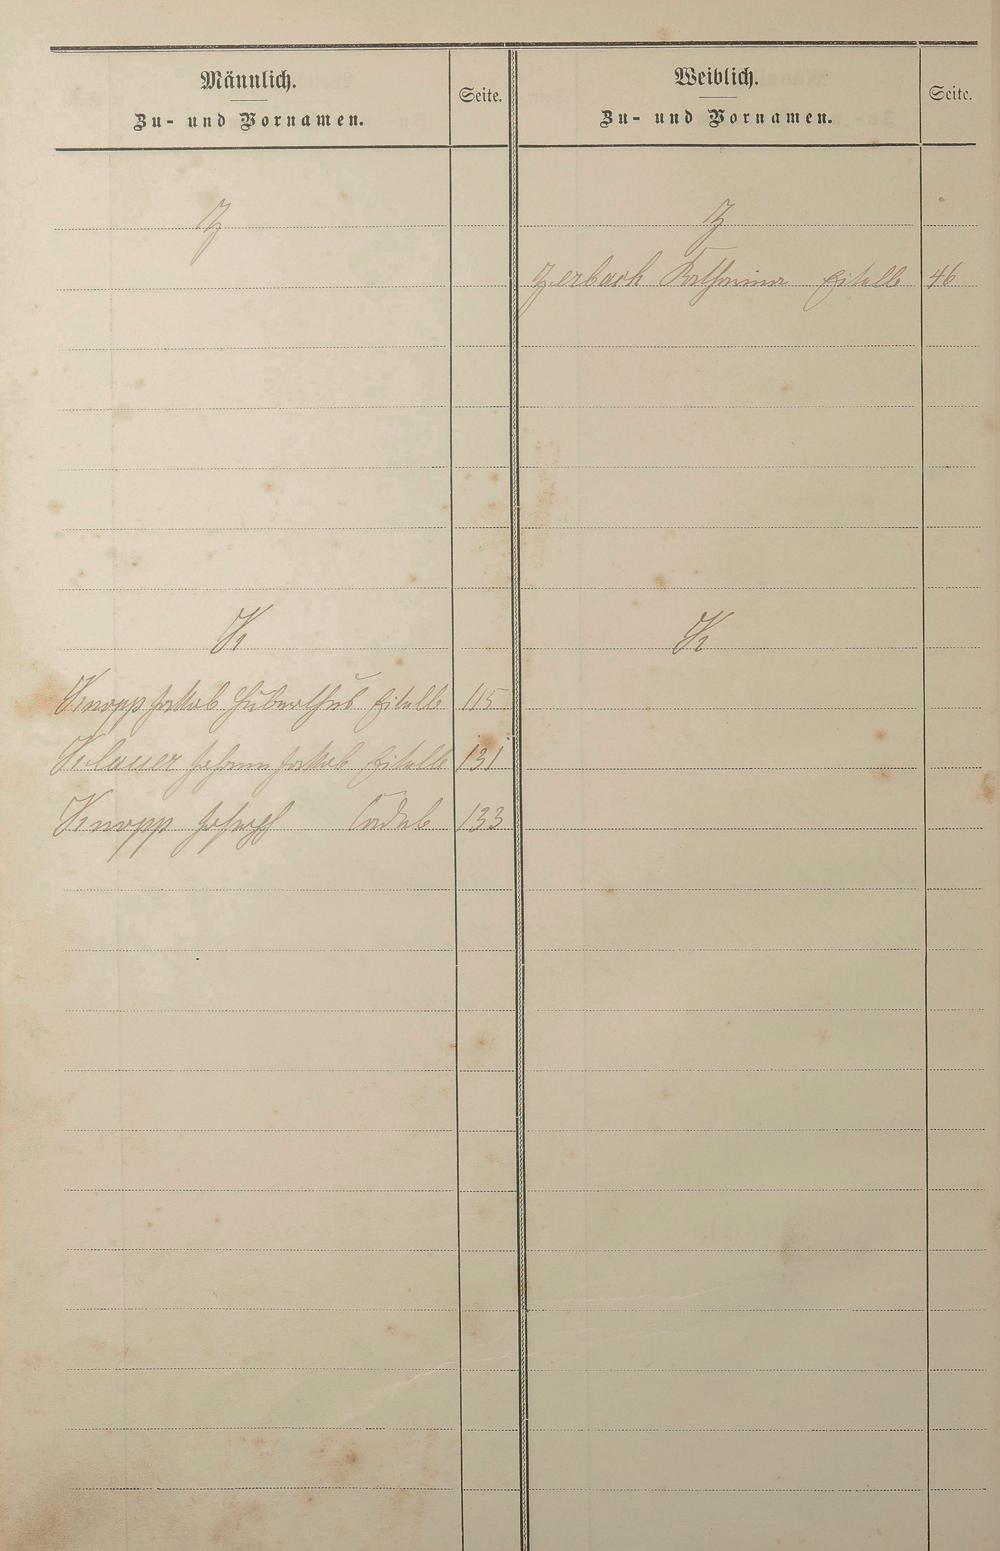 Männlich.
Zu- und Vornamen.
Seite.
Weiblich.
Zu- und Vornamen.
Seite.
Z
Z
Zerbach Katharina Eitelb 46
K
K
Knopp Jakob Huberthus Eitelb 115
Klauer Johann Jakob Eitelb 131
Knopp Joseph Cadenb 133